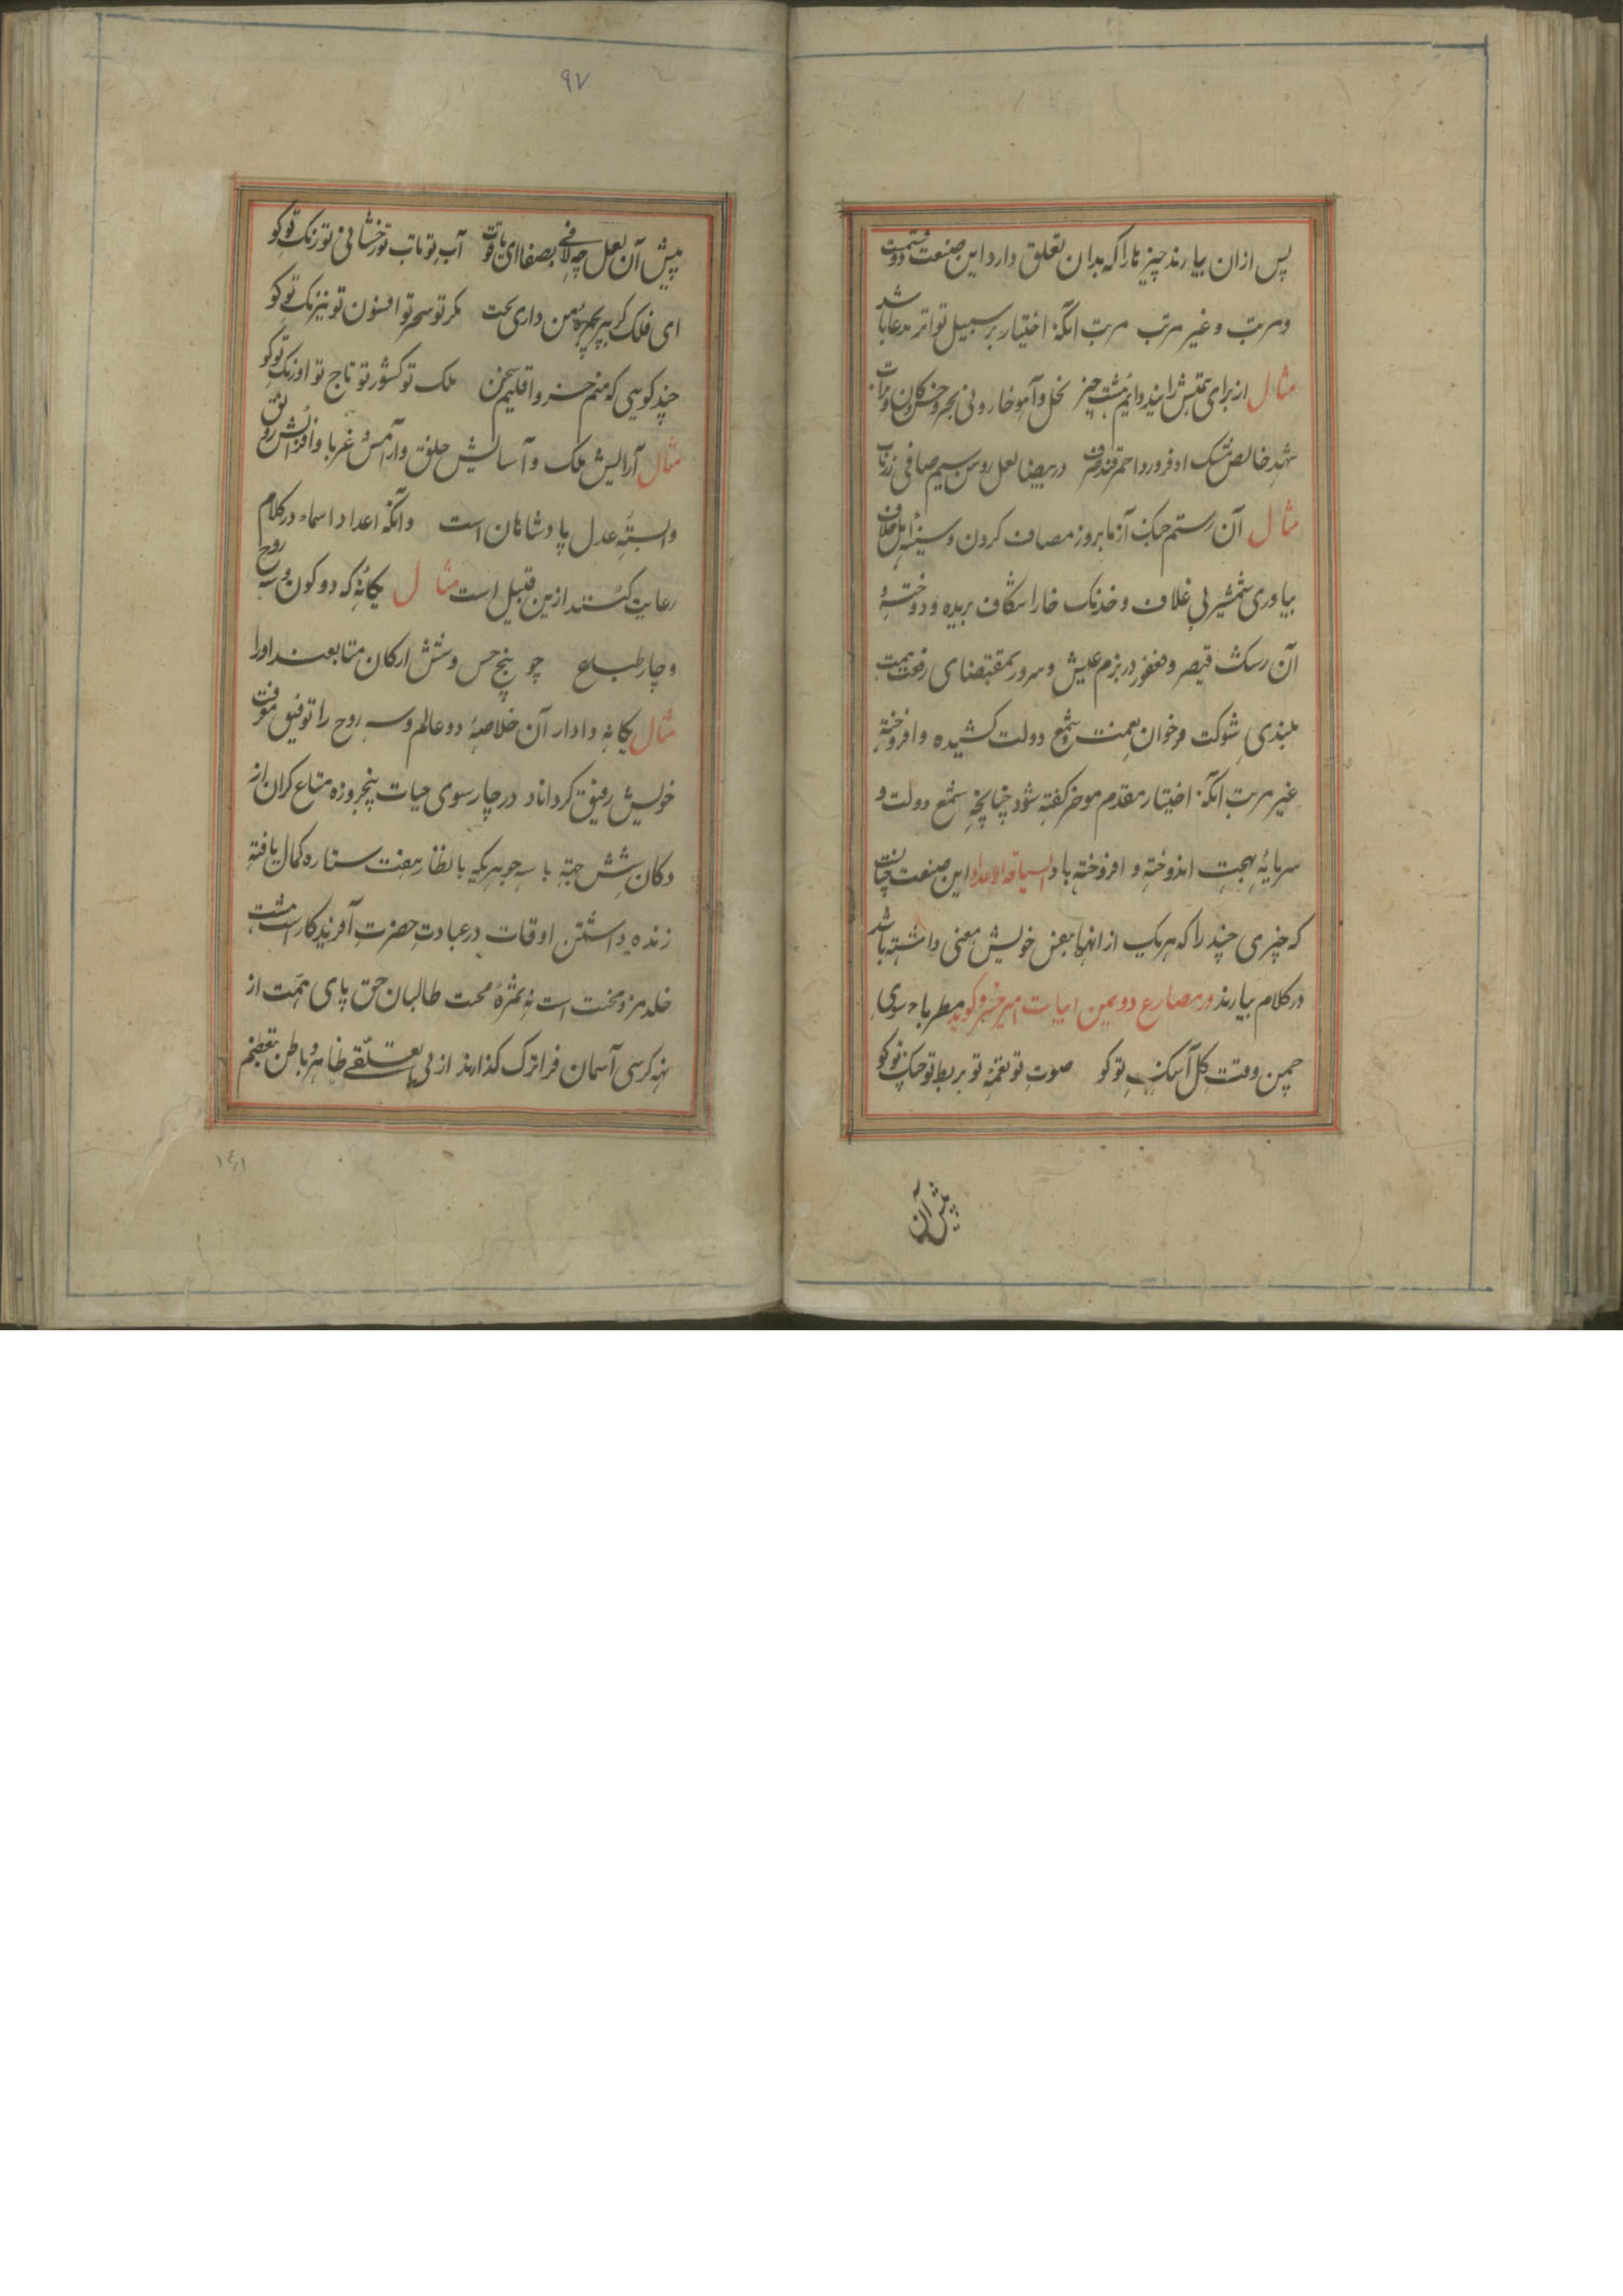 پس ازان بیارند چیزها را که بدان تعلق دارد این صنعت دو قسمت
ومرتب و غیر مرتب مرتب آنکه اختیار بر سبیل تواتر مدعا باشد
مثال از برای راند دایم هشت چیز نخل و آهو خار و نی بحر و خس کان و
شهد خالص مشک قند صرف در بیضا لعل روشن سیم صافی زر ناب
مثال آن رستم جنک آزما بروز مصاف کردن و سینهٔ اهل خلاف
بیاوری شمشیر بی غلاف و خدنک خارا شکاف بریده و دوخته و
آن رشک قیصر و فغفور در بزم عیش و سرور بمقتضای رفعت همت
بلندی شوکت خوان نعمت و شمع دولت کشیده و افروخته
غیر مرتب آنکه اختیار مقدم موخر کفته شود چنانچه شمع دولت و
سرمایهٔ بهجت اندوخته و افروخته باد سیاقة الاعداد این صنعت چنانست
که چیزی چند را که هر یک از انها بنفس خویش معنی داشته باشد
در کلام بیارند در مصارع دویمین ابیات امیر خسرو کوید مطربا سوی
چمن وقت کل آهنک تو کو صوت تو نغمهٔ تو بربط تو چنک تو کو
پیش آن
۹۷
پیش آن لعل چه لافی بصفا ای یاقوت آب تو تاب تو رخشانی تو رنک تو کو
ای فلک کر بهره من داری بحث مکر تو سحر تو افسون تو نیرنک تو کو
چند کویی که منم خسرو اقلیم سخن ملک تو کشور تو تاج تو اورنک تو کو
مثال آرایش ملک و آسایش خلق و آرامش غربا و افزایش رونق
وابستهٔ عدل پادشاهان است و آنکه اعداد اسماء در کلام
رعایت کنند ازین قبیل است مثال یکانهٔ که دو کون و سه روح
و چار طباع چو پنج حس و شش ارکان متابعند او را
مثال یکانه دادار آن خلاصهٔ دو عالم و سه روح را توفیق موافقت
خویش رفیق کرداناد در چار سوی حیات پنجروزه متاع کران از
دکان شش جهة با سه جوهر یکه با نظار هفت ستاره کمال یافته
زنده داشتن اوقات در عبادت حضرت آفریدکار است هشت
خلد مزد محنت است نه ثمرهٔ محبت طالبان حق پای همت از
نه کرسی آسمان فراترک کذارند از بی تعلقی ظاهر و باطن
۱۴۱